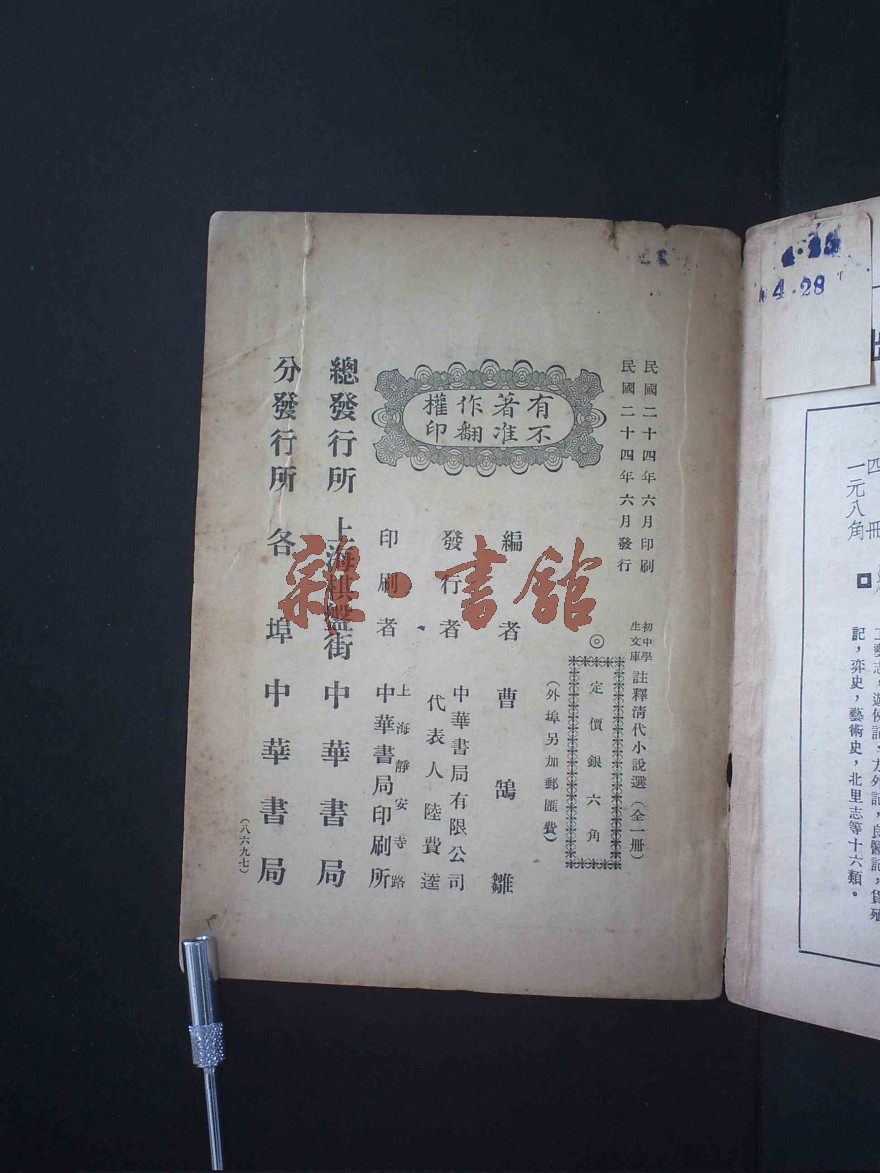 民國二十四年六月印刷
民國二十四年六月發行
初中學
生文庫
註釋清代小說選(全一冊)
◎定價銀六角
(外埠另加郵匯費)
有著作權
不准翻印
編者 曹鵠雛
發行者 中華書局有限公司
代表人 陸費逵
印刷者 上海靜安寺路
中華書局印刷所
總發行所 上海棋盤街 中華書局
分發行所 各埠 中華書局
(八六九七)
雜·書館
4·28
四冊
一元八角
記,弈史,藝術史,北里志等十六類。